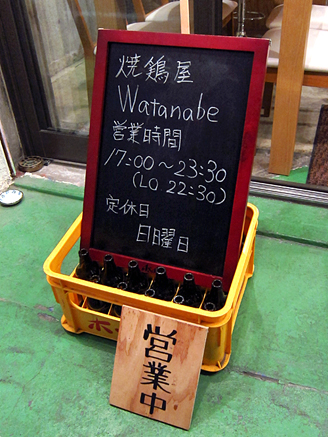 焼鶏屋
Watanabe
営業時間
17:00〜23:30
(LO 22:30)
定休日
日曜日
営業中